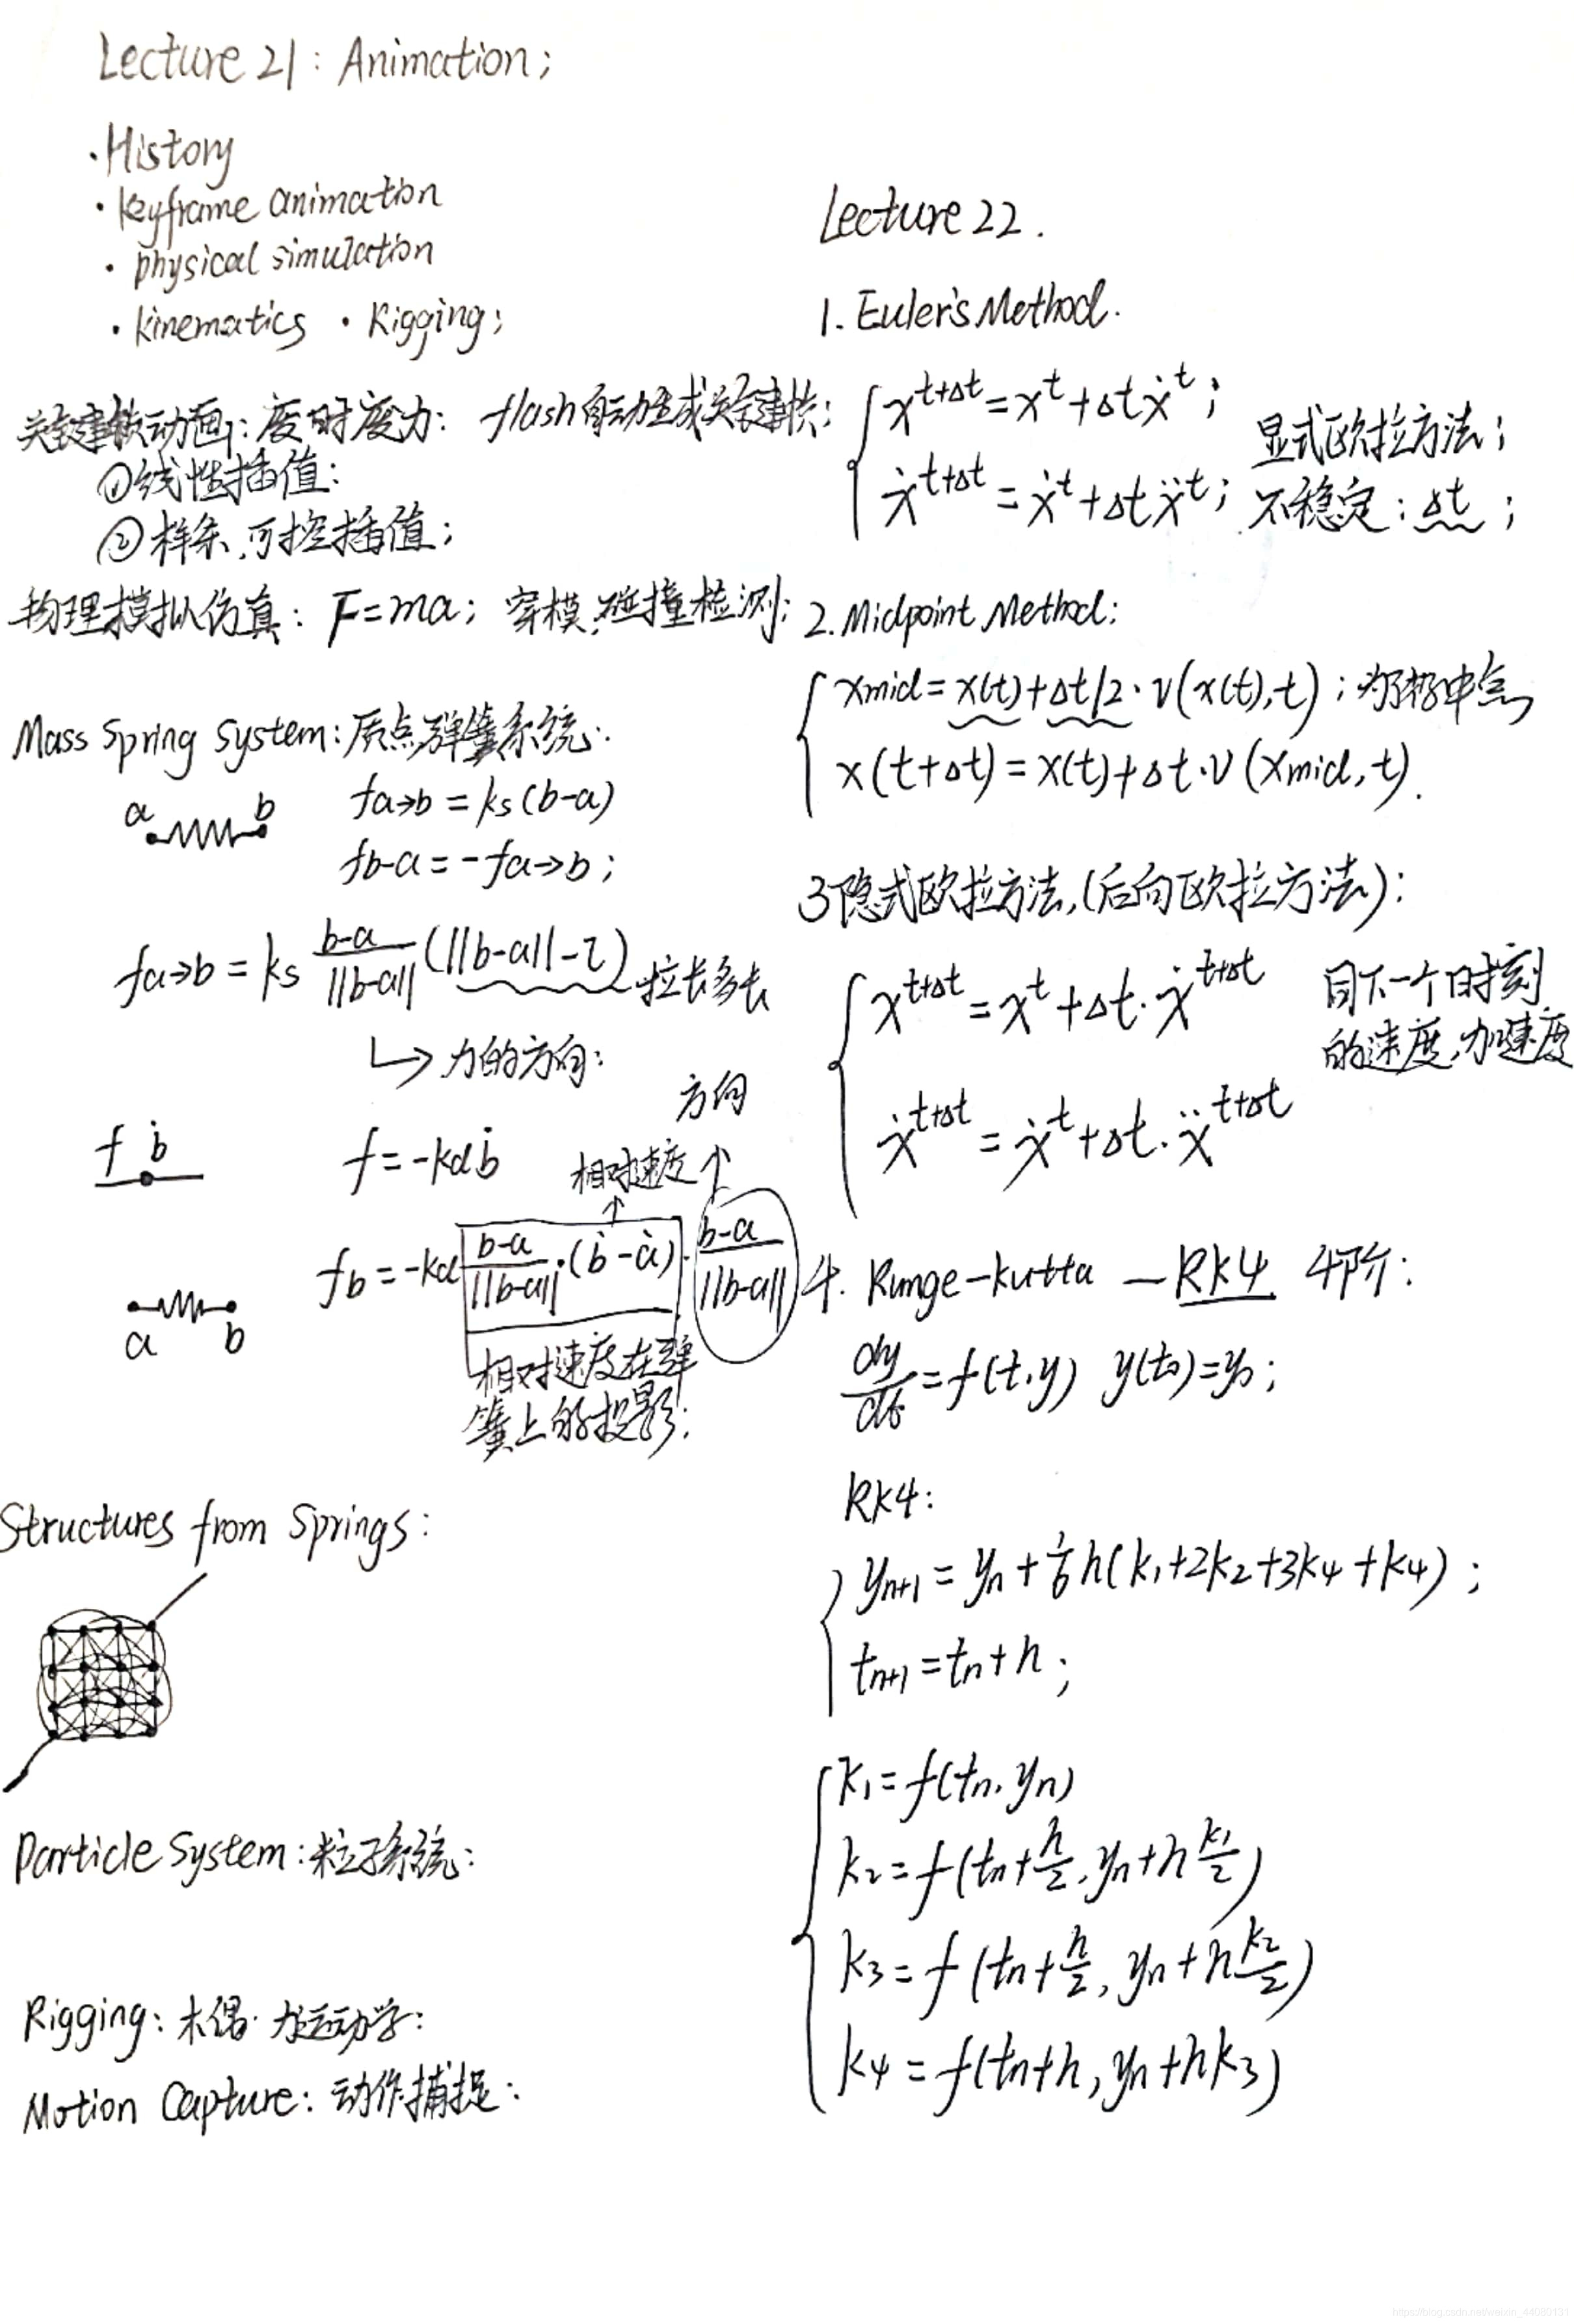 Lecture 21: Animation;
·History
·keyframe animation
·physical simulation
·kinematics ·Rigging;
关键帧动画:废时废力: flash自动生成关键帧;
①线性插值:
②样条,可控插值;
物理模拟仿真: F=ma; 穿模;碰撞检测;
Mass Spring System:质点弹簧系统.
a b
fa→b = ks(b-a)
fb-a = -fa→b;
fa→b = ks b-a/||b-a|| (||b-a||-l) 拉长多长
↳ 力的方向:
方向
f ḃ
f=-kdḃ 相对速度
fb=-kd b-a/||b-a||·(ḃ-ȧ)·b-a/||b-a||
a b
相对速度在弹
簧上的投影;
Structures from Springs:
Particle System:粒子系统:
Rigging:木偶.
Motion Capture:动作捕捉:
Lecture 22.
1. Euler's Method.
x^{t+Δt}=x^t+Δtẋ^t;
ẋ^{t+Δt}=ẋ^t+Δtẍ^t;
显式欧拉方法;
不稳定:Δt;
2. Midpoint Method:
xmid=x(t)+Δt/2·v(x(t),t);
x(t+Δt)=x(t)+Δt·v(xmid,t).
3隐式欧拉方法,(后向欧拉方法):
x^{t+Δt}=x^t+Δt·ẋ^{t+Δt}
ẋ^{t+Δt}=ẋ^t+Δt·ẍ^{t+Δt}
用下一个时刻
的速度,加速度
4. Runge-kutta —RK4 4阶:
dy/dt=f(t,y) y(t₀)=y₀;
RK4:
yn+1=yn+1/6h(k1+2k2+3k4+k4);
tn+1=tn+h;
k1=f(tn,yn)
k2=f(tn+h/2,yn+h k1/2)
k3=f(tn+h/2,yn+h k2/2)
k4=f(tn+h,yn+hk3)
https://blog.csdn.net/weixin_44080131